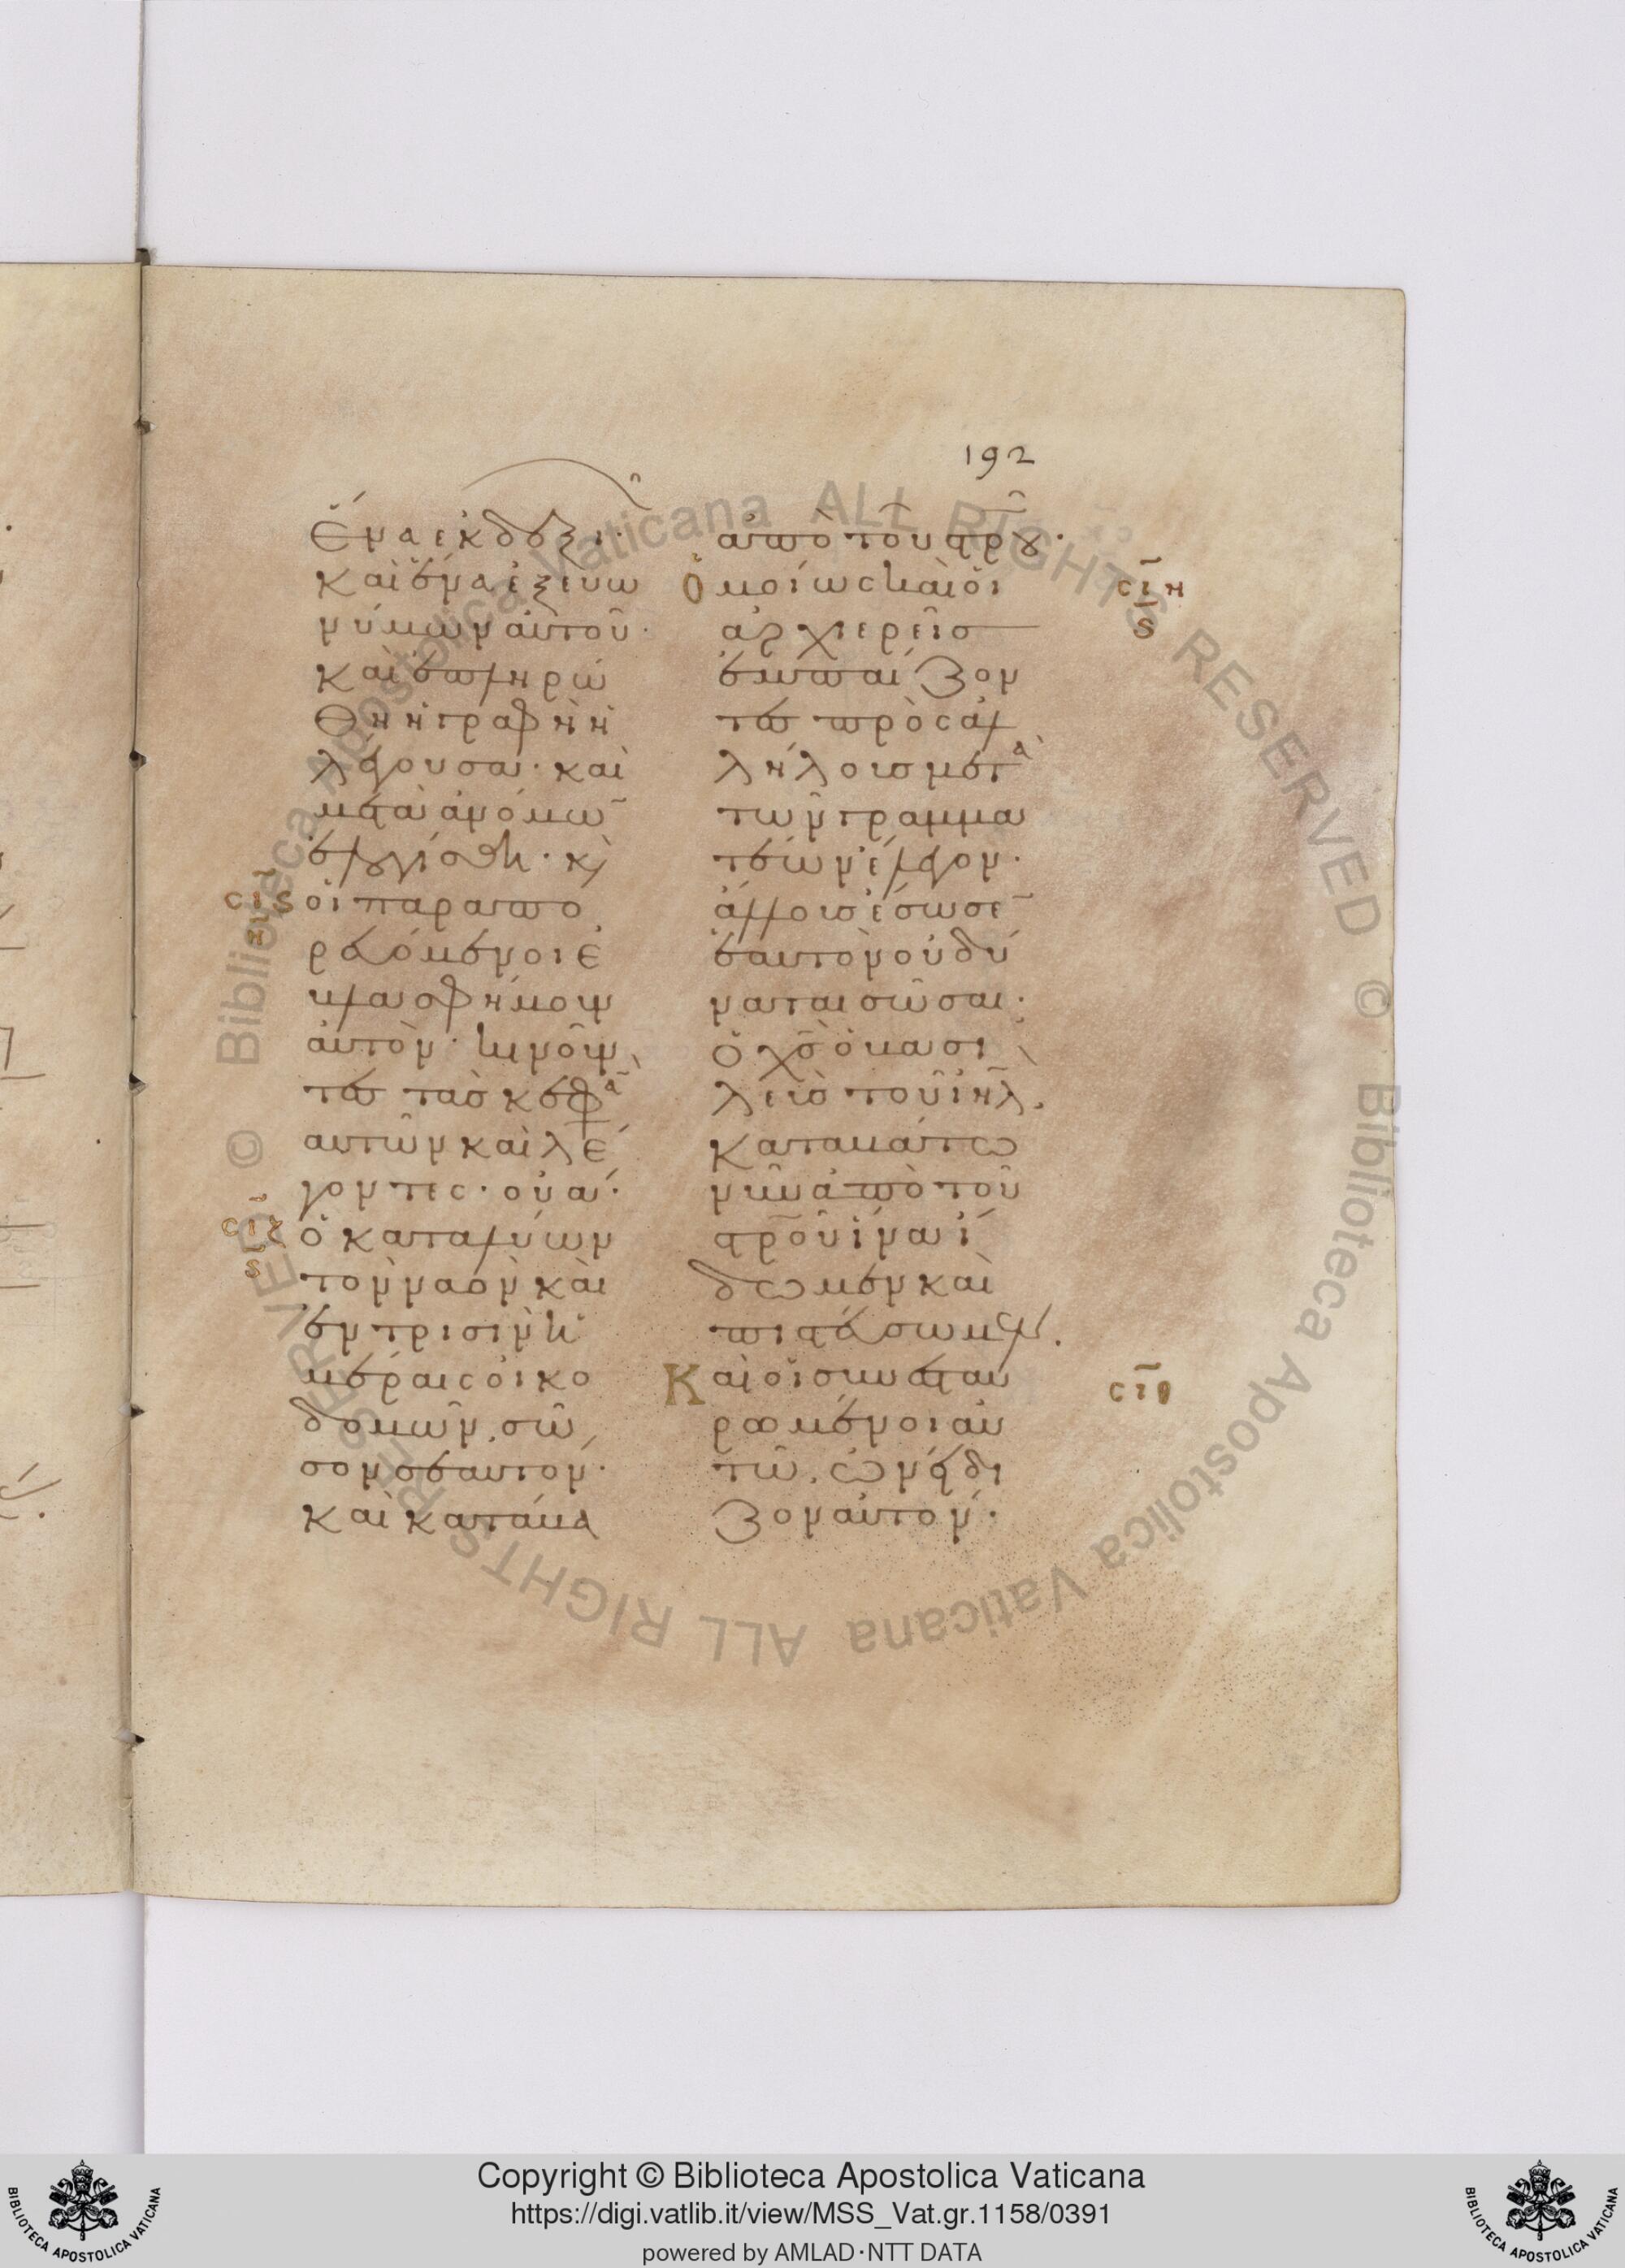 192
ἕνα ἐκ δεξιῶν·
καὶ ἕνα ἐξ εὐω
νύμων αὐτοῦ·
καὶ ἐπληρώ
θη ἡ γραφὴ ἡ
λέγουσα· καὶ
μετὰ ἀνόμω̄
ἐλογίσθη· κ̀
σις οἱ παραπο
ρευόμενοι ἐ
βλασφήμουν
αὐτὸν· κινοῦν
τες τὰς κεφα̃
αὐτῶν καὶ λέ
γοντες· οὐά·
σιζ ὁ καταλύων
ς
τὸν ναὸν καὶ
ἐν τρισὶν ἡ
μέραις οἰκο
δομῶν, σῶ
σον σεαυτόν·
καὶ κατάβα
ἀπὸ τοῦ στ̅ρου·
Ὁμοίως καὶ οἱ
σιη
ς
ἀρχιερεῖς
ἐμπαίζον
τες πρὸς ἀλ
λήλοις μετὰ
τῶν γραμμα
τέων ἔλεγον·
ἄλλους ἔσωσε̄
ἑαυτὸν οὐ δύ
ναται σῶσαι·
ὁ χ̅ς ὁ βασι
λεὺς τοῦ ἰη̅λ.
καταβάτω
νῦν ἀπὸ τοῦ
στ̅ροῦ ἵνα ἴ
δωμεν καὶ
πιστεύσωμεν.
Καὶ οἱ συνεσταυ
σιθ
ρωμένοι αὐ
τῶ, ὠνείδι
ζον αὐτόν·
Copyright © Biblioteca Apostolica Vaticana
https://digi.vatlib.it/view/MSS_Vat.gr.1158/0391
powered by AMLAD·NTT DATA
BIBLIOTECA APOSTOLICA VATICANA
BIBLIOTECA APOSTOLICA VATICANA
© Biblioteca Apostolica Vaticana ALL RIGHTS RESERVED © Biblioteca Apostolica Vaticana ALL RIGHTS RESERVED